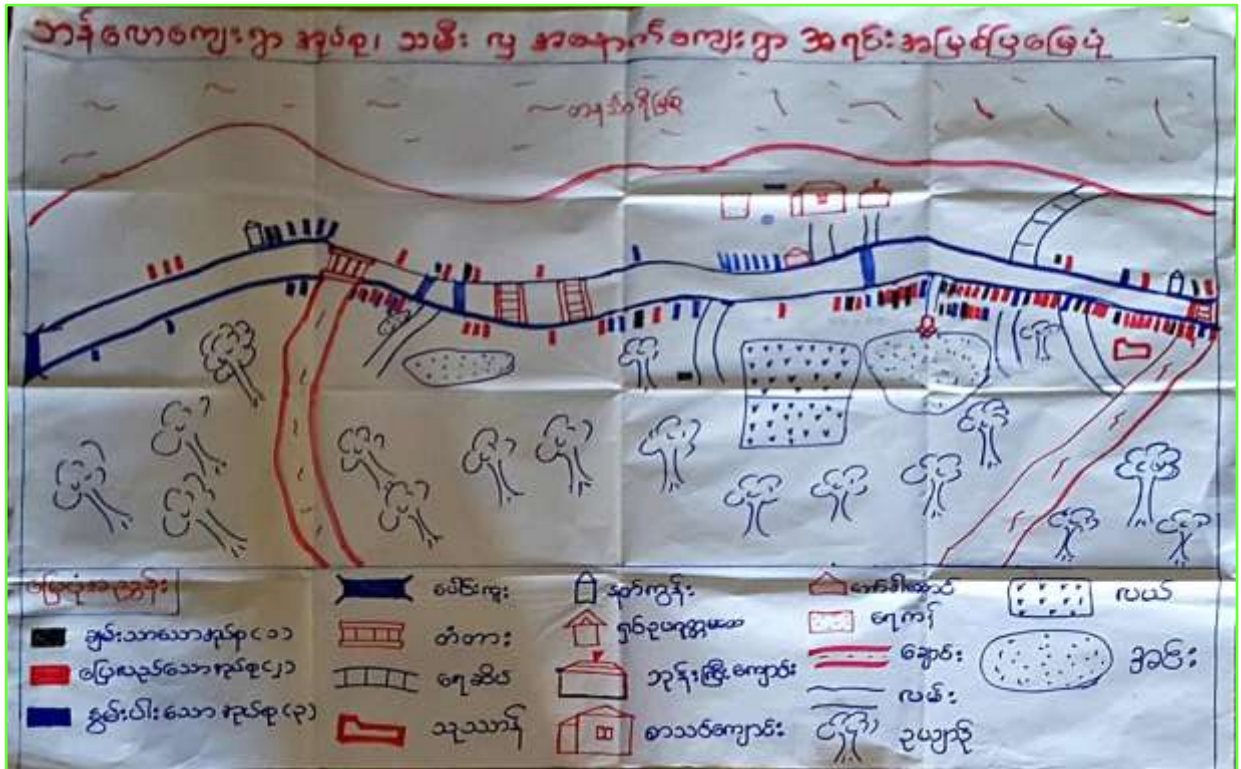 ဘန်လောကျေးရွာ အုပ်စု၊ သမီးလှ အနောက်ကျေးရွာ အရင်းအမြစ်ပြမြေပုံ
တနင်္သာရီမြစ်
မြေပုံအညွှန်း
ချမ်းသာသောအုပ်စု(၁)
ပြေလည်သောအုပ်စု(၂)
နွမ်းပါးသောအုပ်စု(၃)
ပေါင်းကူး
တံတား
ရေဆိပ်
သုဿာန်
နတ်ကွန်း
ရှင်ဥပဂုတ္တ
ဘုန်းကြီးကျောင်း
စာသင်ကျောင်း
ရေကန်
ချောင်း
လမ်း
ဥယျာဉ်
လယ်
အင်း